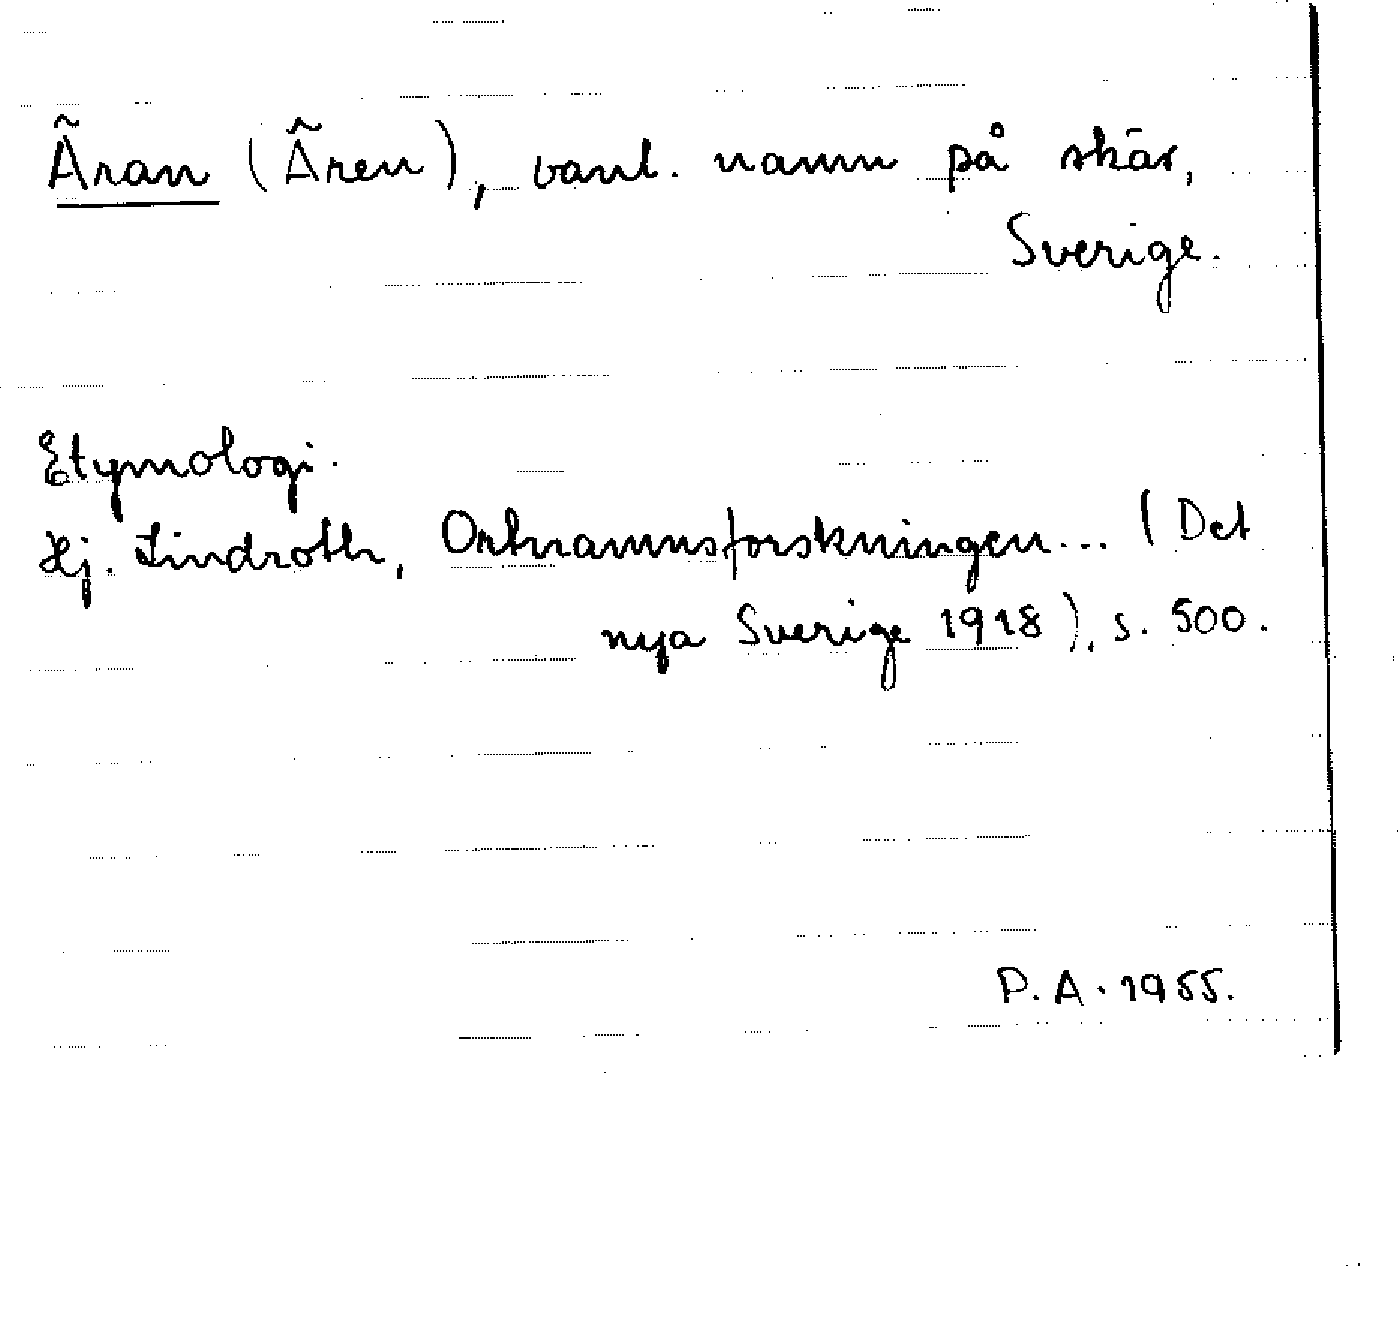 Äran (Ären), vanl. namn på skär,
Sverige.
Etymologi.
Hj. Lindroth, Ortnamnsforskningen... (Det
nya Sverige 1918), s. 500.
P.A. 1955.